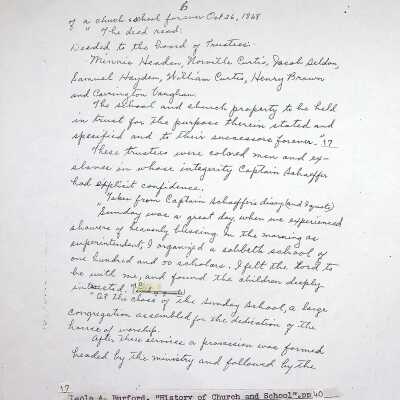 6
of a church school forever Oct 26, 1868
" The deed read:
Deeded to the board of Trustees:
Minnis Headen, Norville Curtis, Jacob Seldon,
Samuel Hayden, William Curtis, Henry Brown
and Carrington Vaughan.
The school and church property to be held
in trust for the purpose therein stated and
specified and to their successors forever." 17
These trustees were colored men and ex-
slaves in whose integrity Captain Schaeffer
had explicit confidence.
Taken from Captain Schaeffer's diary (and I quote)
"Sunday was a great day, when we experienced
showers of heavenly blessing. In the morning as
superintendent, I organized a sabbeth school of
one hundred and 50 scholars. I felt the Lord to
be with me, and found the children deeply
interested.
"At the close of the Sunday School, a large
congregation assembled for the dedication of the
house of worship.
After these services a procession was formed
headed by the ministry and followed by the
17
Leola A. Burford, "History of Church and School", pp 40